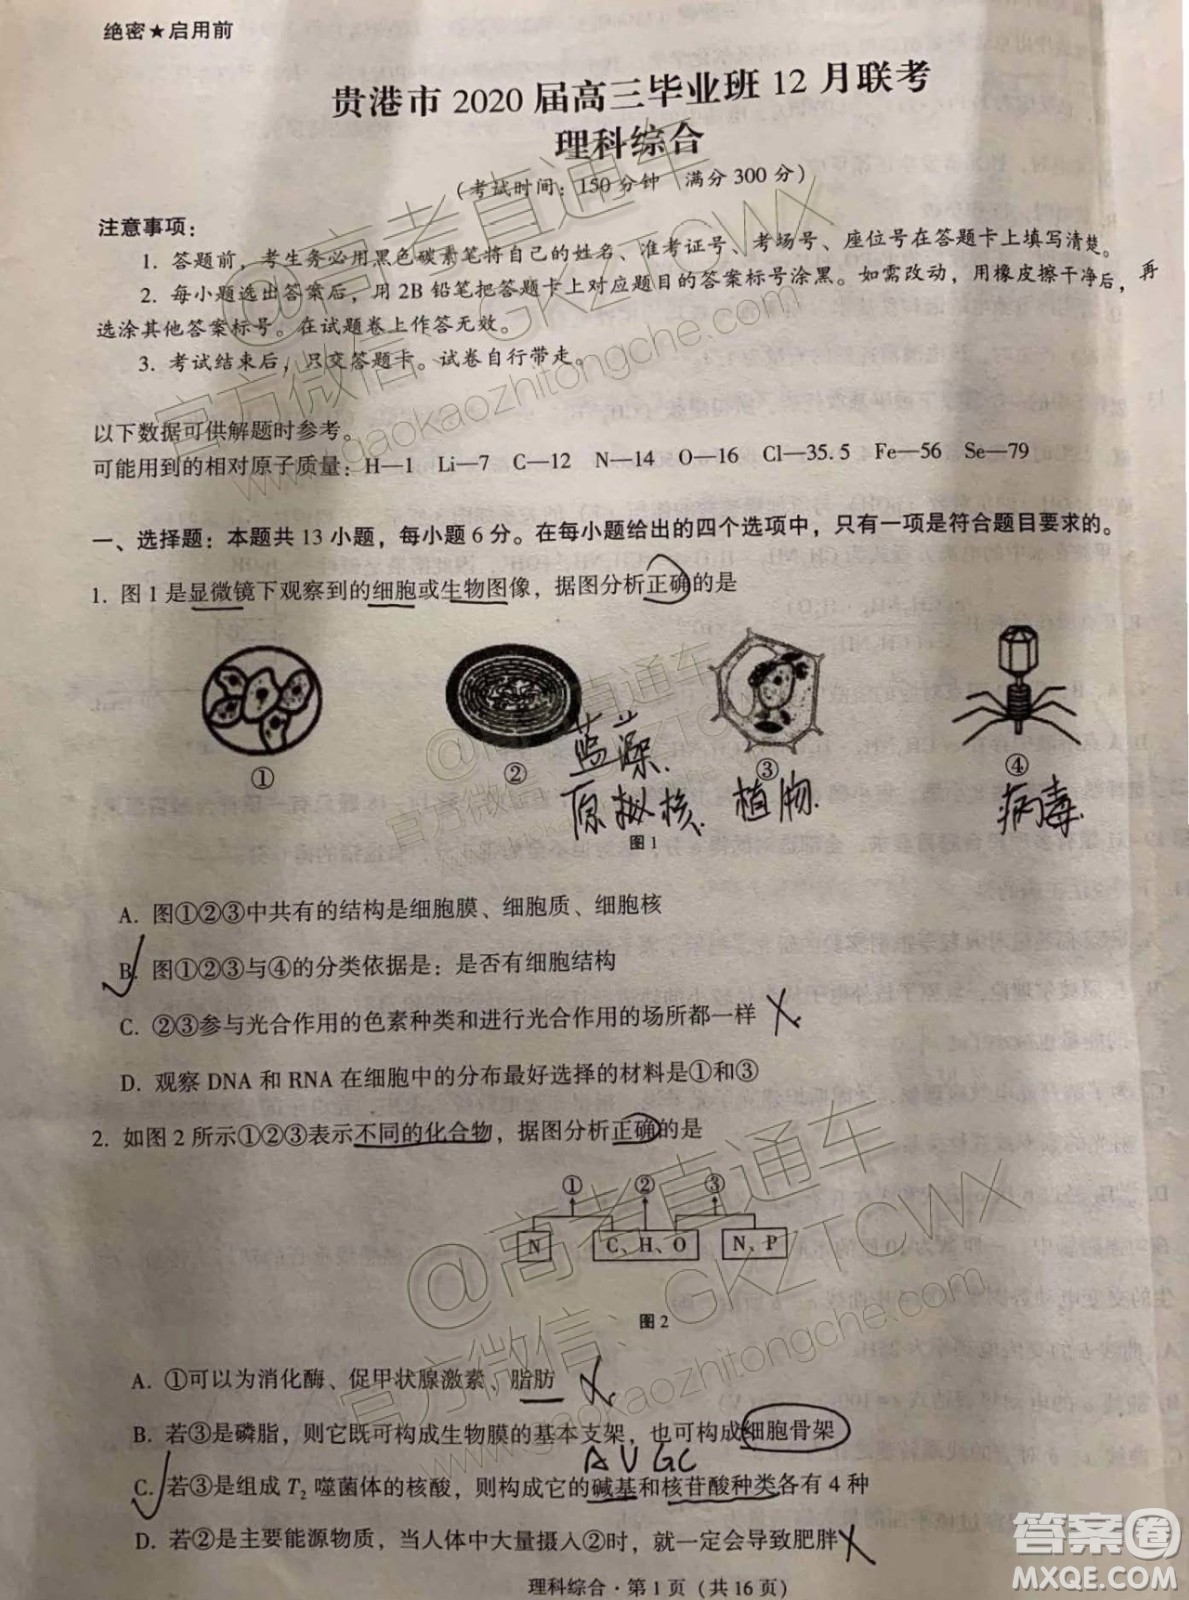 绝密★启用前
贵港市 2020 届高三毕业班 12 月联考
理科综合
(考试时间：150 分钟　满分 300 分)
注意事项：
1. 答题前，考生务必用黑色碳素笔将自己的姓名、准考证号、考场号、座位号在答题卡上填写清楚。
2. 每小题选出答案后，用 2B 铅笔把答题卡上对应题目的答案标号涂黑。如需改动，用橡皮擦干净后，再
选涂其他答案标号。在试题卷上作答无效。
3. 考试结束后，只交答题卡。试卷自行带走。
以下数据可供解题时参考。
可能用到的相对原子质量：H—1　Li—7　C—12　N—14　O—16　Cl—35.5　Fe—56　Se—79
一、选择题：本题共 13 小题，每小题 6 分。在每小题给出的四个选项中，只有一项是符合题目要求的。
1. 图 1 是显微镜下观察到的细胞或生物图像，据图分析正确的是
① ② ③ ④
蓝藻
原拟核 植物 病毒
图 1
A. 图①②③中共有的结构是细胞膜、细胞质、细胞核
B. 图①②③与④的分类依据是：是否有细胞结构
C. ②③参与光合作用的色素种类和进行光合作用的场所都一样
D. 观察 DNA 和 RNA 在细胞中的分布最好选择的材料是①和③
2. 如图 2 所示①②③表示不同的化合物，据图分析正确的是
① ② ③
N C、H、O N、P
图 2
A. ①可以为消化酶、促甲状腺激素、脂肪
B. 若③是磷脂，则它既可构成生物膜的基本支架，也可构成细胞骨架
A U G C
C. 若③是组成 T2 噬菌体的核酸，则构成它的碱基和核苷酸种类各有 4 种
D. 若②是主要能源物质，当人体中大量摄入②时，就一定会导致肥胖
理科综合·第 1 页（共 16 页）
@高考直通车
官方微信：GKZTCWX
www.gaokaozhitongche.com
@高考直通车
官方微信：GKZTCWX
www.gaokaozhitongche.com
答案圈
MXQE.COM